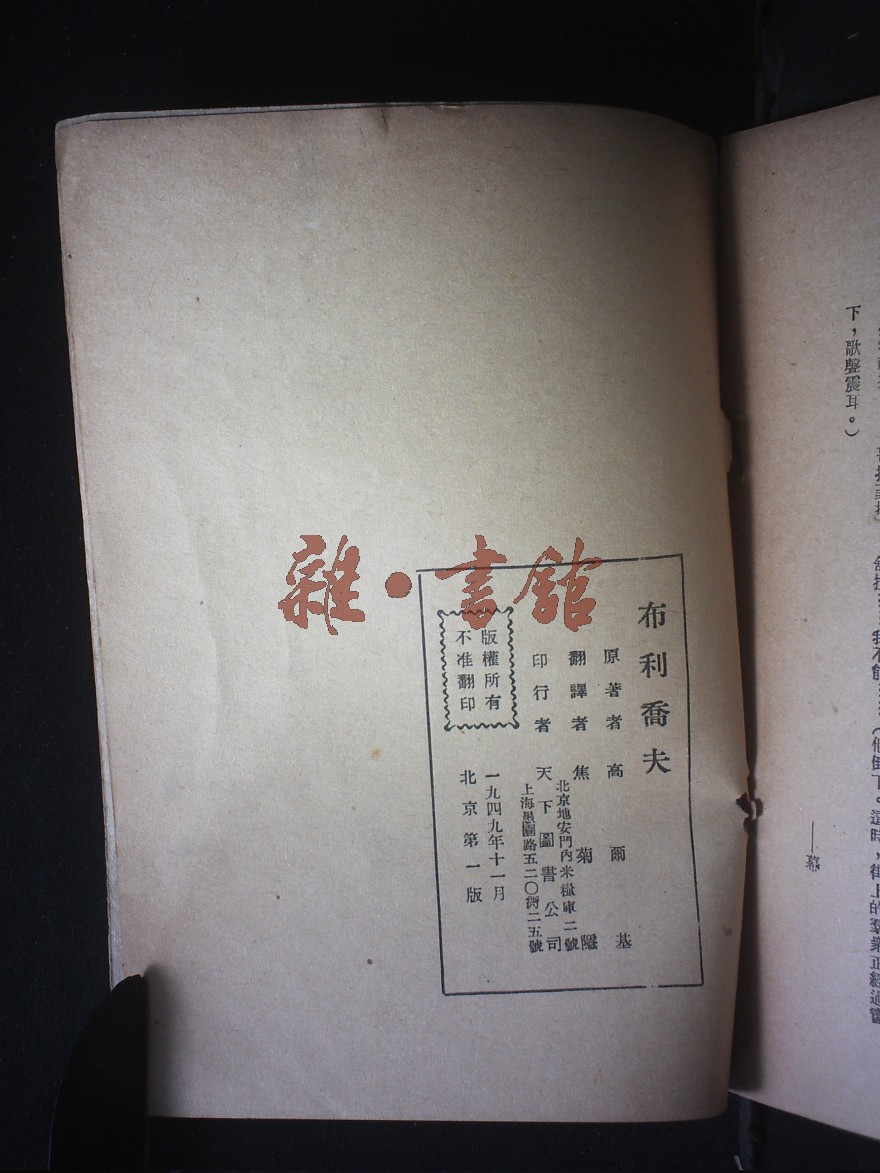 下，歌聲震耳。）
——幕
布利喬夫
原著者 高爾基
翻譯者 焦菊隱
北京地安門內米糧庫二號
印行者 天下圖書公司
上海愚園路五二〇衖二五號
一九四九年十一月
北京第一版
版權所有
不准翻印
雜·書館